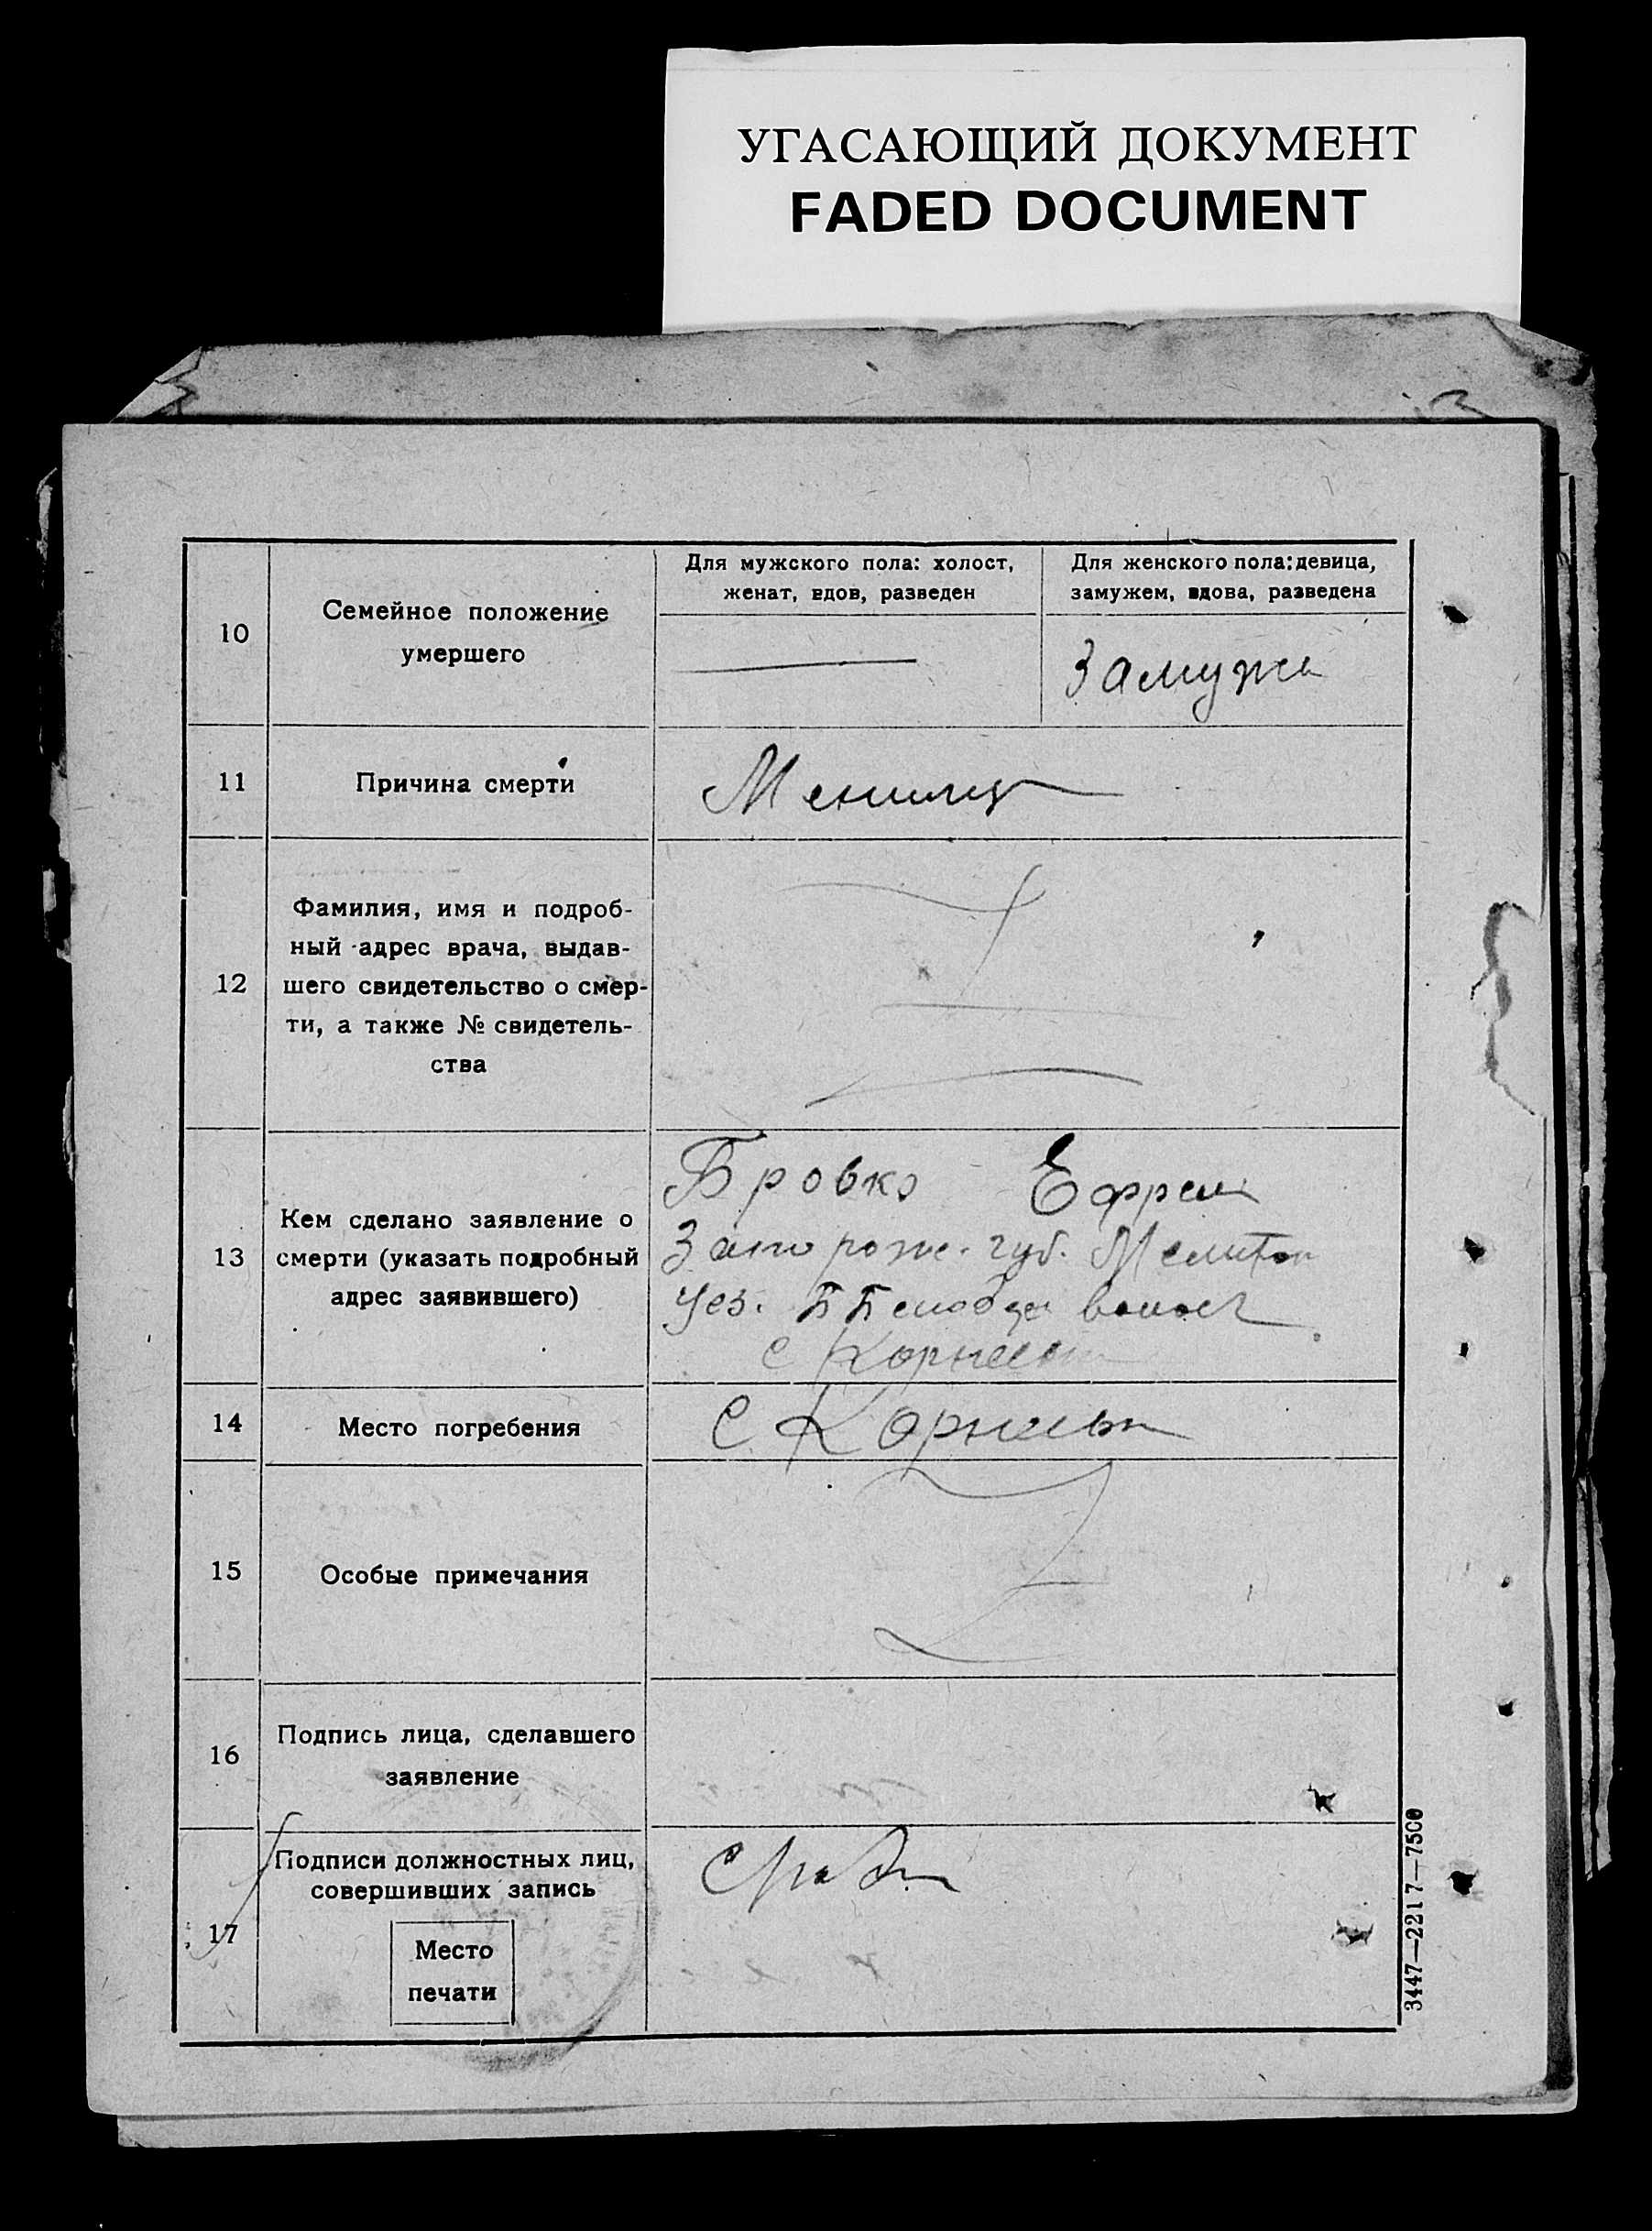 УГАСАЮЩИЙ ДОКУМЕНТ
FADED DOCUMENT
10
Семейное положение
умершего
Для мужского пола: холост,
женат, вдов, разведен
Для женского пола: девица,
замужем, вдова, разведена
Замужем
11
Причина смерти
12
Фамилия, имя и подроб-
ный адрес врача, выдав-
шего свидетельство о смер-
ти, а также № свидетель-
ства
13
Кем сделано заявление о
смерти (указать подробный
адрес заявившего)
Бровко Ефрем
Запорож. губ. Мелитоп
Уез.
с Корнеев
14
Место погребения
С Корнеев
15
Особые примечания
16
Подпись лица, сделавшего
заявление
17
Подписи должностных лиц,
совершивших запись
Место
печати
3447—2217—7500